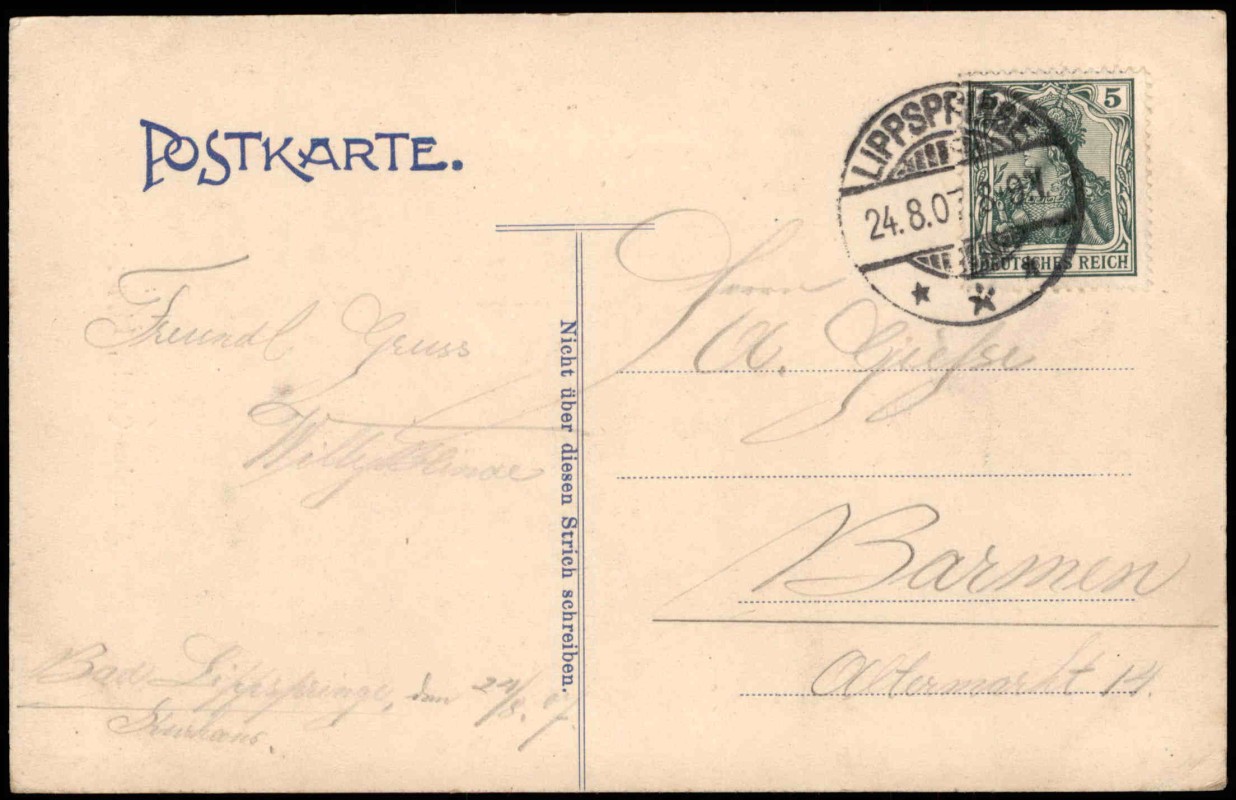 POSTKARTE.
LIPPSPRINGE
24.8.07. 8-9N.
5
DEUTSCHES REICH
Freundl Gruss
Willy
Bad Lippspringe, den 24/8. 07.
Kurhaus.
Nicht über diesen Strich schreiben.
Herrn
A. Giese
Barmen
Altermarkt 14.